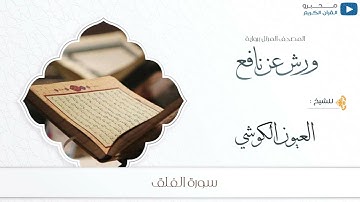 محبرو
القرآن الكريم
المصحف المرتل برواية
ورش عن نافع
للشيخ :
العيون الكوشي
سورة الفلق